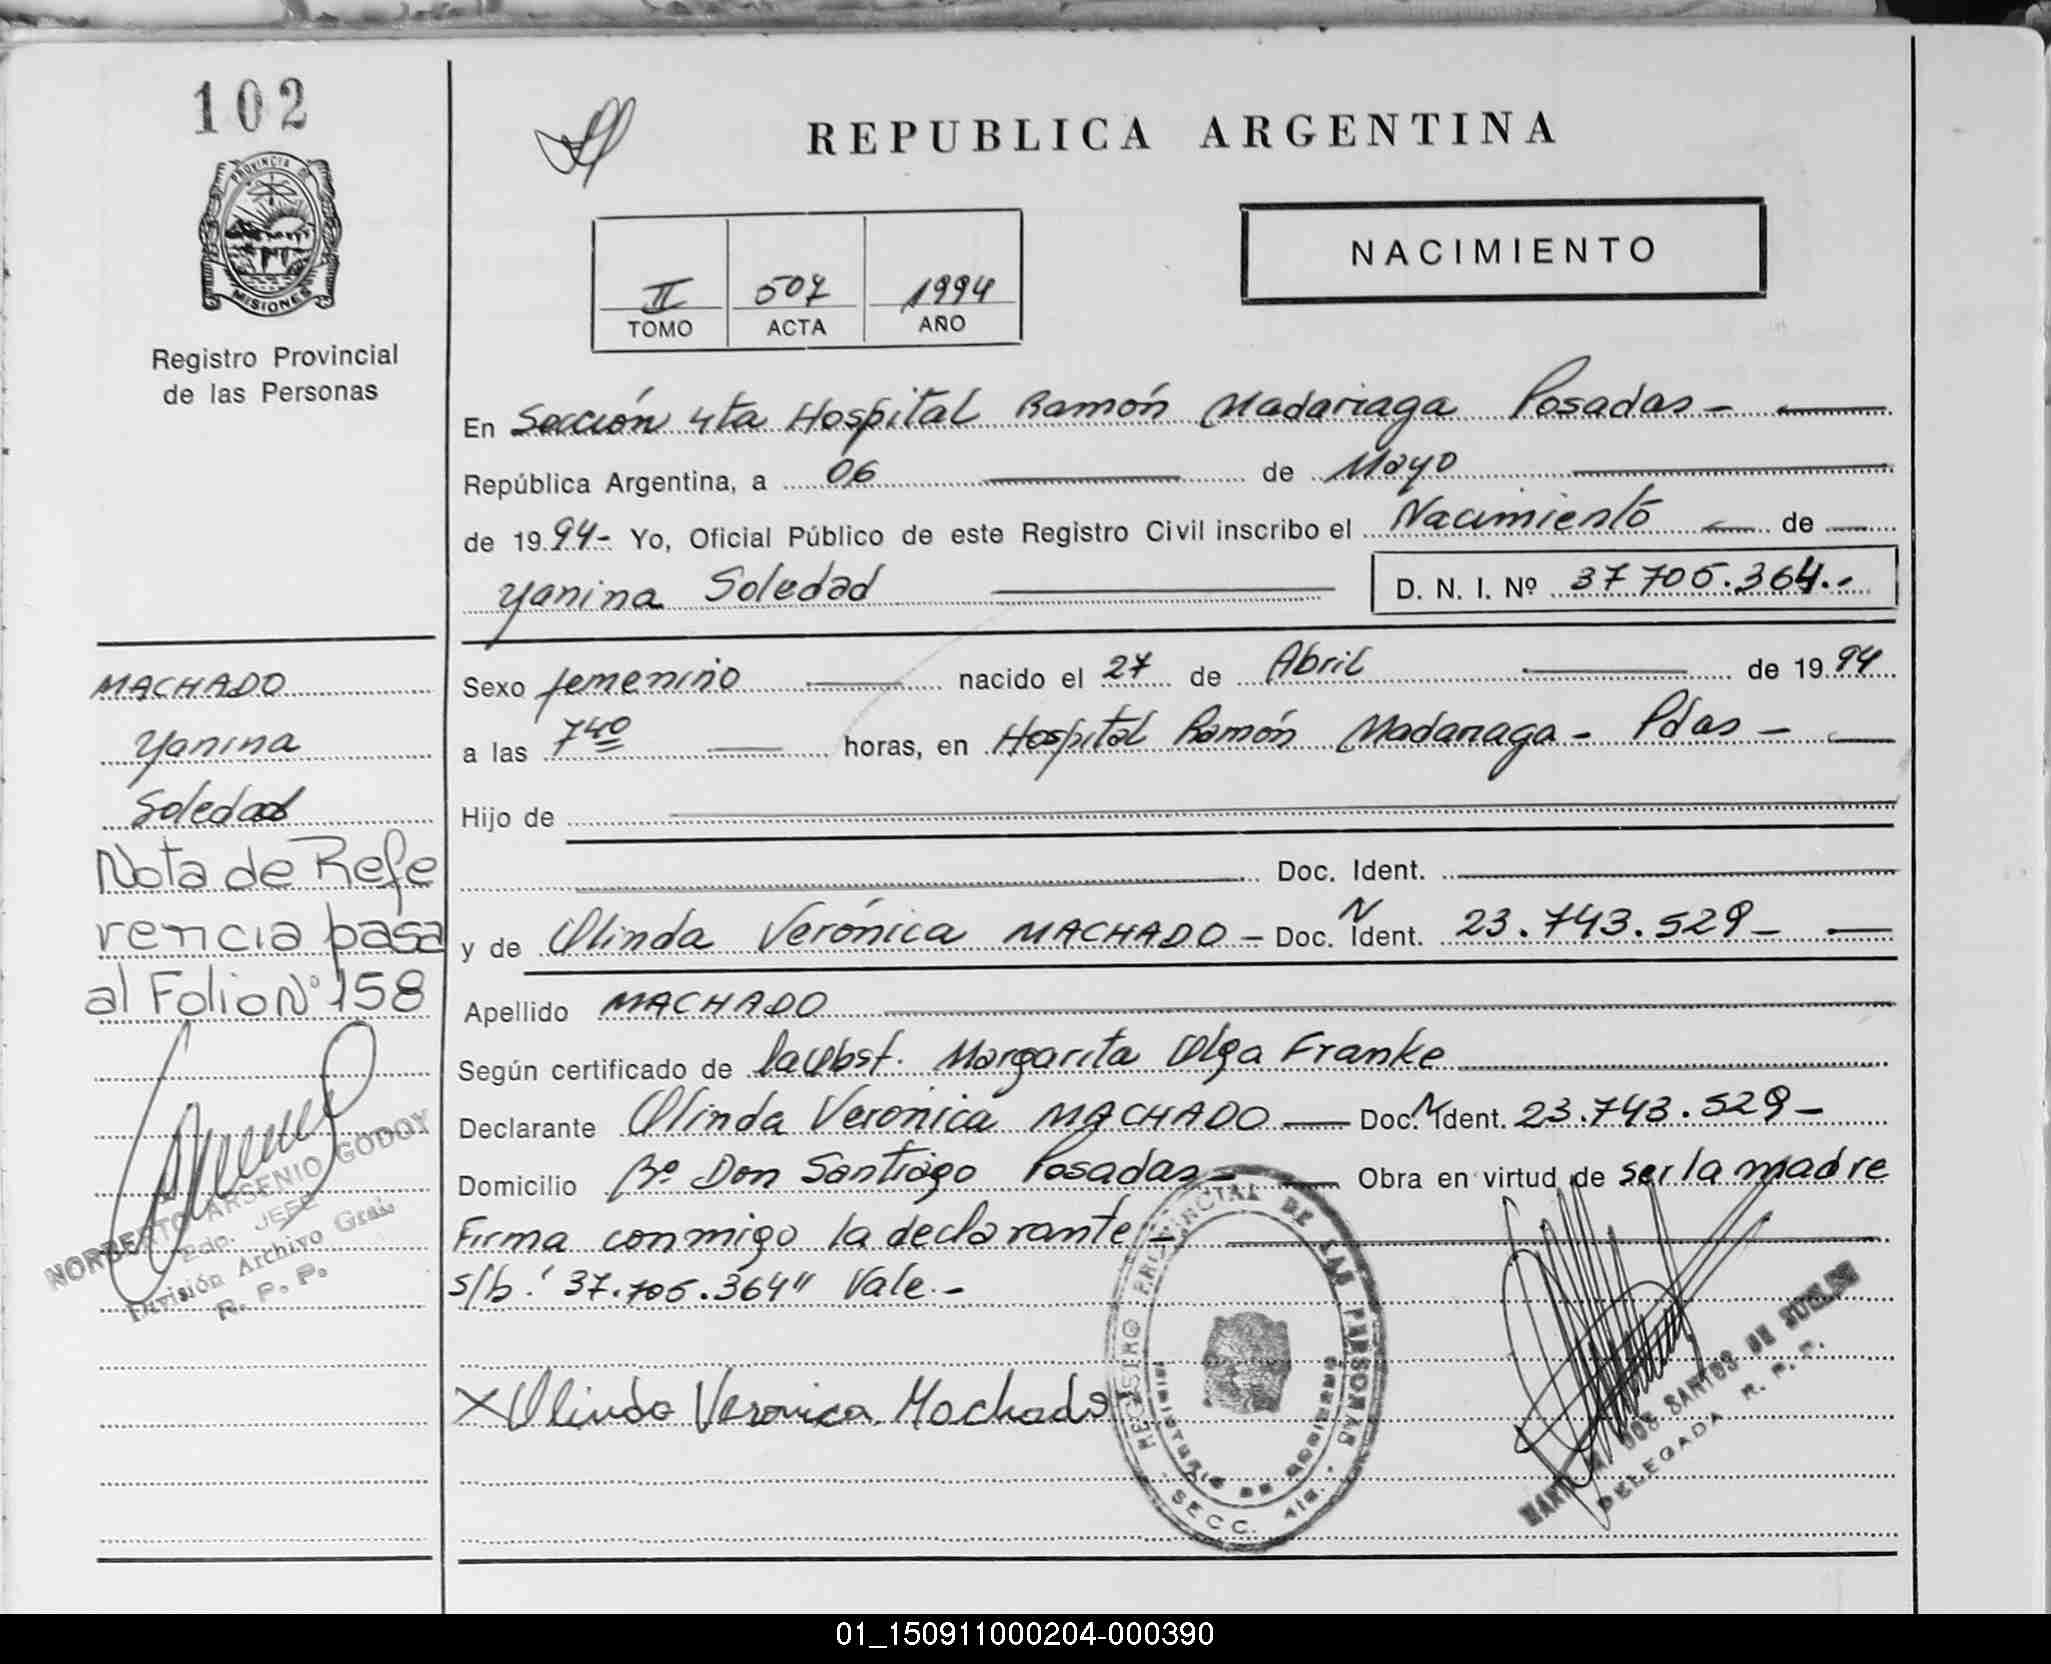 102
PROVINCIA DE
MISIONES
Registro Provincial
de las Personas
REPUBLICA ARGENTINA
NACIMIENTO
II 507 1994
TOMO ACTA AÑO
En Sección 4ta Hospital Ramón Madariaga Posadas -
República Argentina, a 06 de Mayo
de 1994- Yo, Oficial Público de este Registro Civil inscribo el Nacimiento de
Yanina Soledad D. N. I. Nº 37 705.364.-
MACHADO
Yanina
Soledad
Nota de Refe
rencia pasa
al Folio Nº 158
NORBERTO ARSENIO GODOY
JEFE
Dpto. División Archivo Gral.
R. P. P.
Sexo femenino nacido el 27 de Abril de 1994
a las 7 40 horas, en Hospital Ramón Madariaga - Pdas -
Hijo de
Doc. Ident.
y de Olinda Verónica MACHADO - Doc. N Ident. 23.743.529 -
Apellido MACHADO
Según certificado de la Obst. Margarita Olga Franke
Declarante Olinda Verónica MACHADO — Doc. N Ident. 23.743.529 -
Domicilio Bº Don Santiago Posadas - Obra en virtud de ser la madre
Firma conmigo la declarante -
s/b: "37.705.364" Vale.-
X Olinda Veronica Machado
REGISTRO PROVINCIAL DE LAS PERSONAS
SECC. 4ta.
DOS SANTOS DE
DELEGADA R. P. P.
01_150911000204-000390